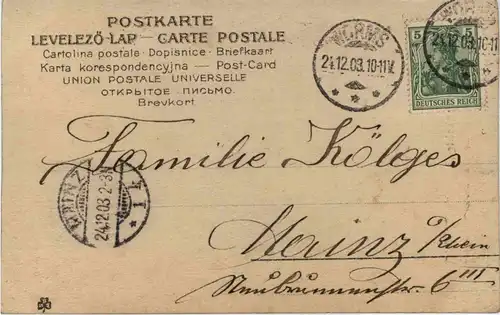 POSTKARTE
LEVELEZÖ-LAP — CARTE POSTALE
Cartolina postale - Dopisnice - Briefkaart
Karta korespondencyjna — Post-Card
UNION POSTALE UNIVERSELLE
ОТКРЫТОЕ ПИСЬМО.
Brevkort
WORMS
24.12.03.10-11V.
5 5
DEUTSCHES REICH
WORMS
24.12.03.10-11
Familie Kölges
MAINZ
24.12.03 2-3N
Mainz a/Rhein
Neubrunnenstr. 6 III